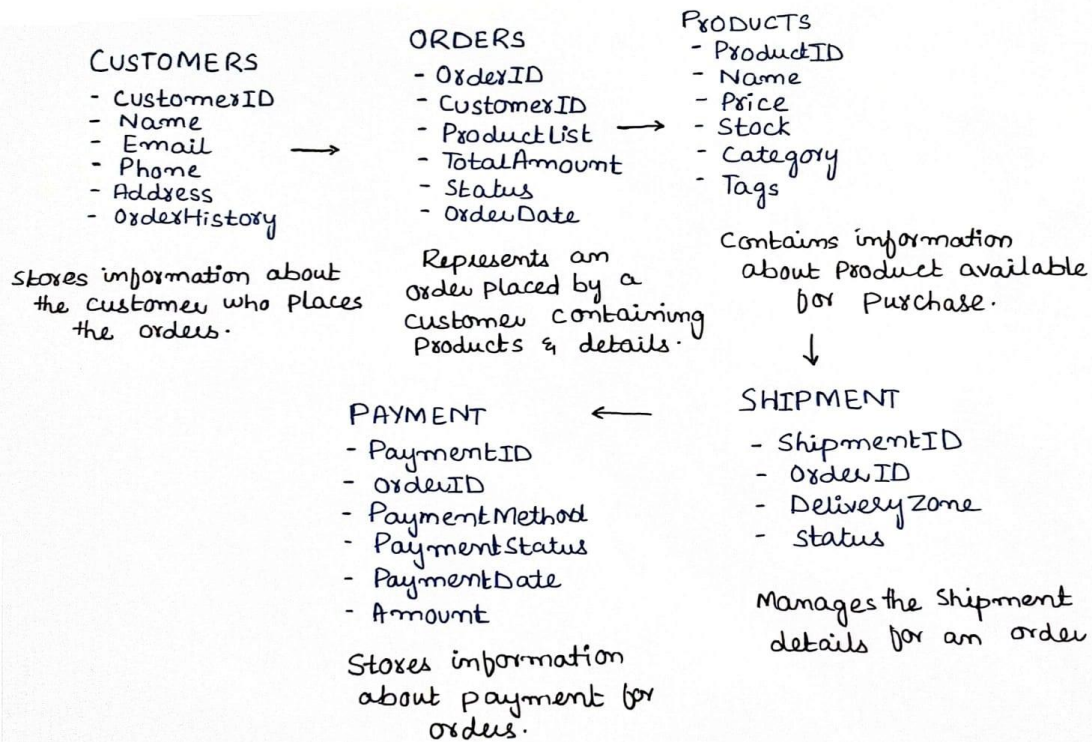 CUSTOMERS
- CustomerID
- Name
- Email
- Phone
- Address
- OrderHistory
Stores information about
the customer who places
the orders.
ORDERS
- OrderID
- CustomerID
- ProductList
- TotalAmount
- Status
- OrderDate
Represents an
order placed by a
customer containing
Products & details.
PRODUCTS
- ProductID
- Name
- Price
- Stock
- Category
- Tags
Contains information
about Product available
for Purchase.
SHIPMENT
- ShipmentID
- OrderID
- DeliveryZone
- Status
Manages the Shipment
details for an order
PAYMENT
- PaymentID
- OrderID
- PaymentMethod
- PaymentStatus
- PaymentDate
- Amount
Stores information
about payment for
orders.